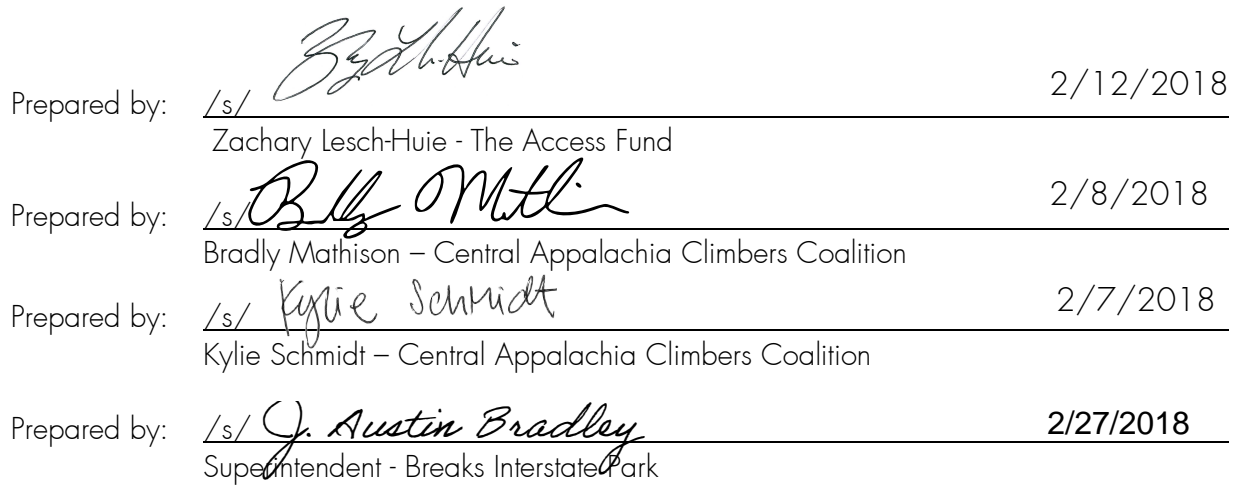 Prepared by: /s/ Zachary Lesch-Huie 2/12/2018
Zachary Lesch-Huie - The Access Fund
Prepared by: /s/ Bradly Mathison 2/8/2018
Bradly Mathison – Central Appalachia Climbers Coalition
Prepared by: /s/ Kylie Schmidt 2/7/2018
Kylie Schmidt – Central Appalachia Climbers Coalition
Prepared by: /s/ J. Austin Bradley 2/27/2018
Superintendent - Breaks Interstate Park